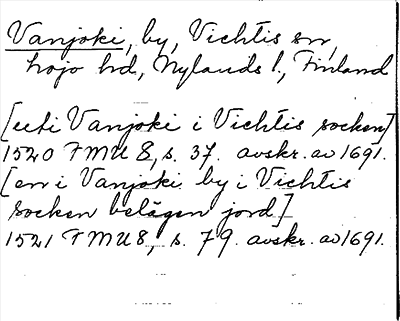 Vanjoki, by, Vichtis sn,
Lojo hd, Nylands l., Finland
[uti Vanjoki i Vichtis socken]
1520 FMU 8, s. 37. avskr. av 1691.
[en i Vanjoki by i Vichtis
socken belägen jord]
1521 FMU 8, s. 79. avskr. av 1691.